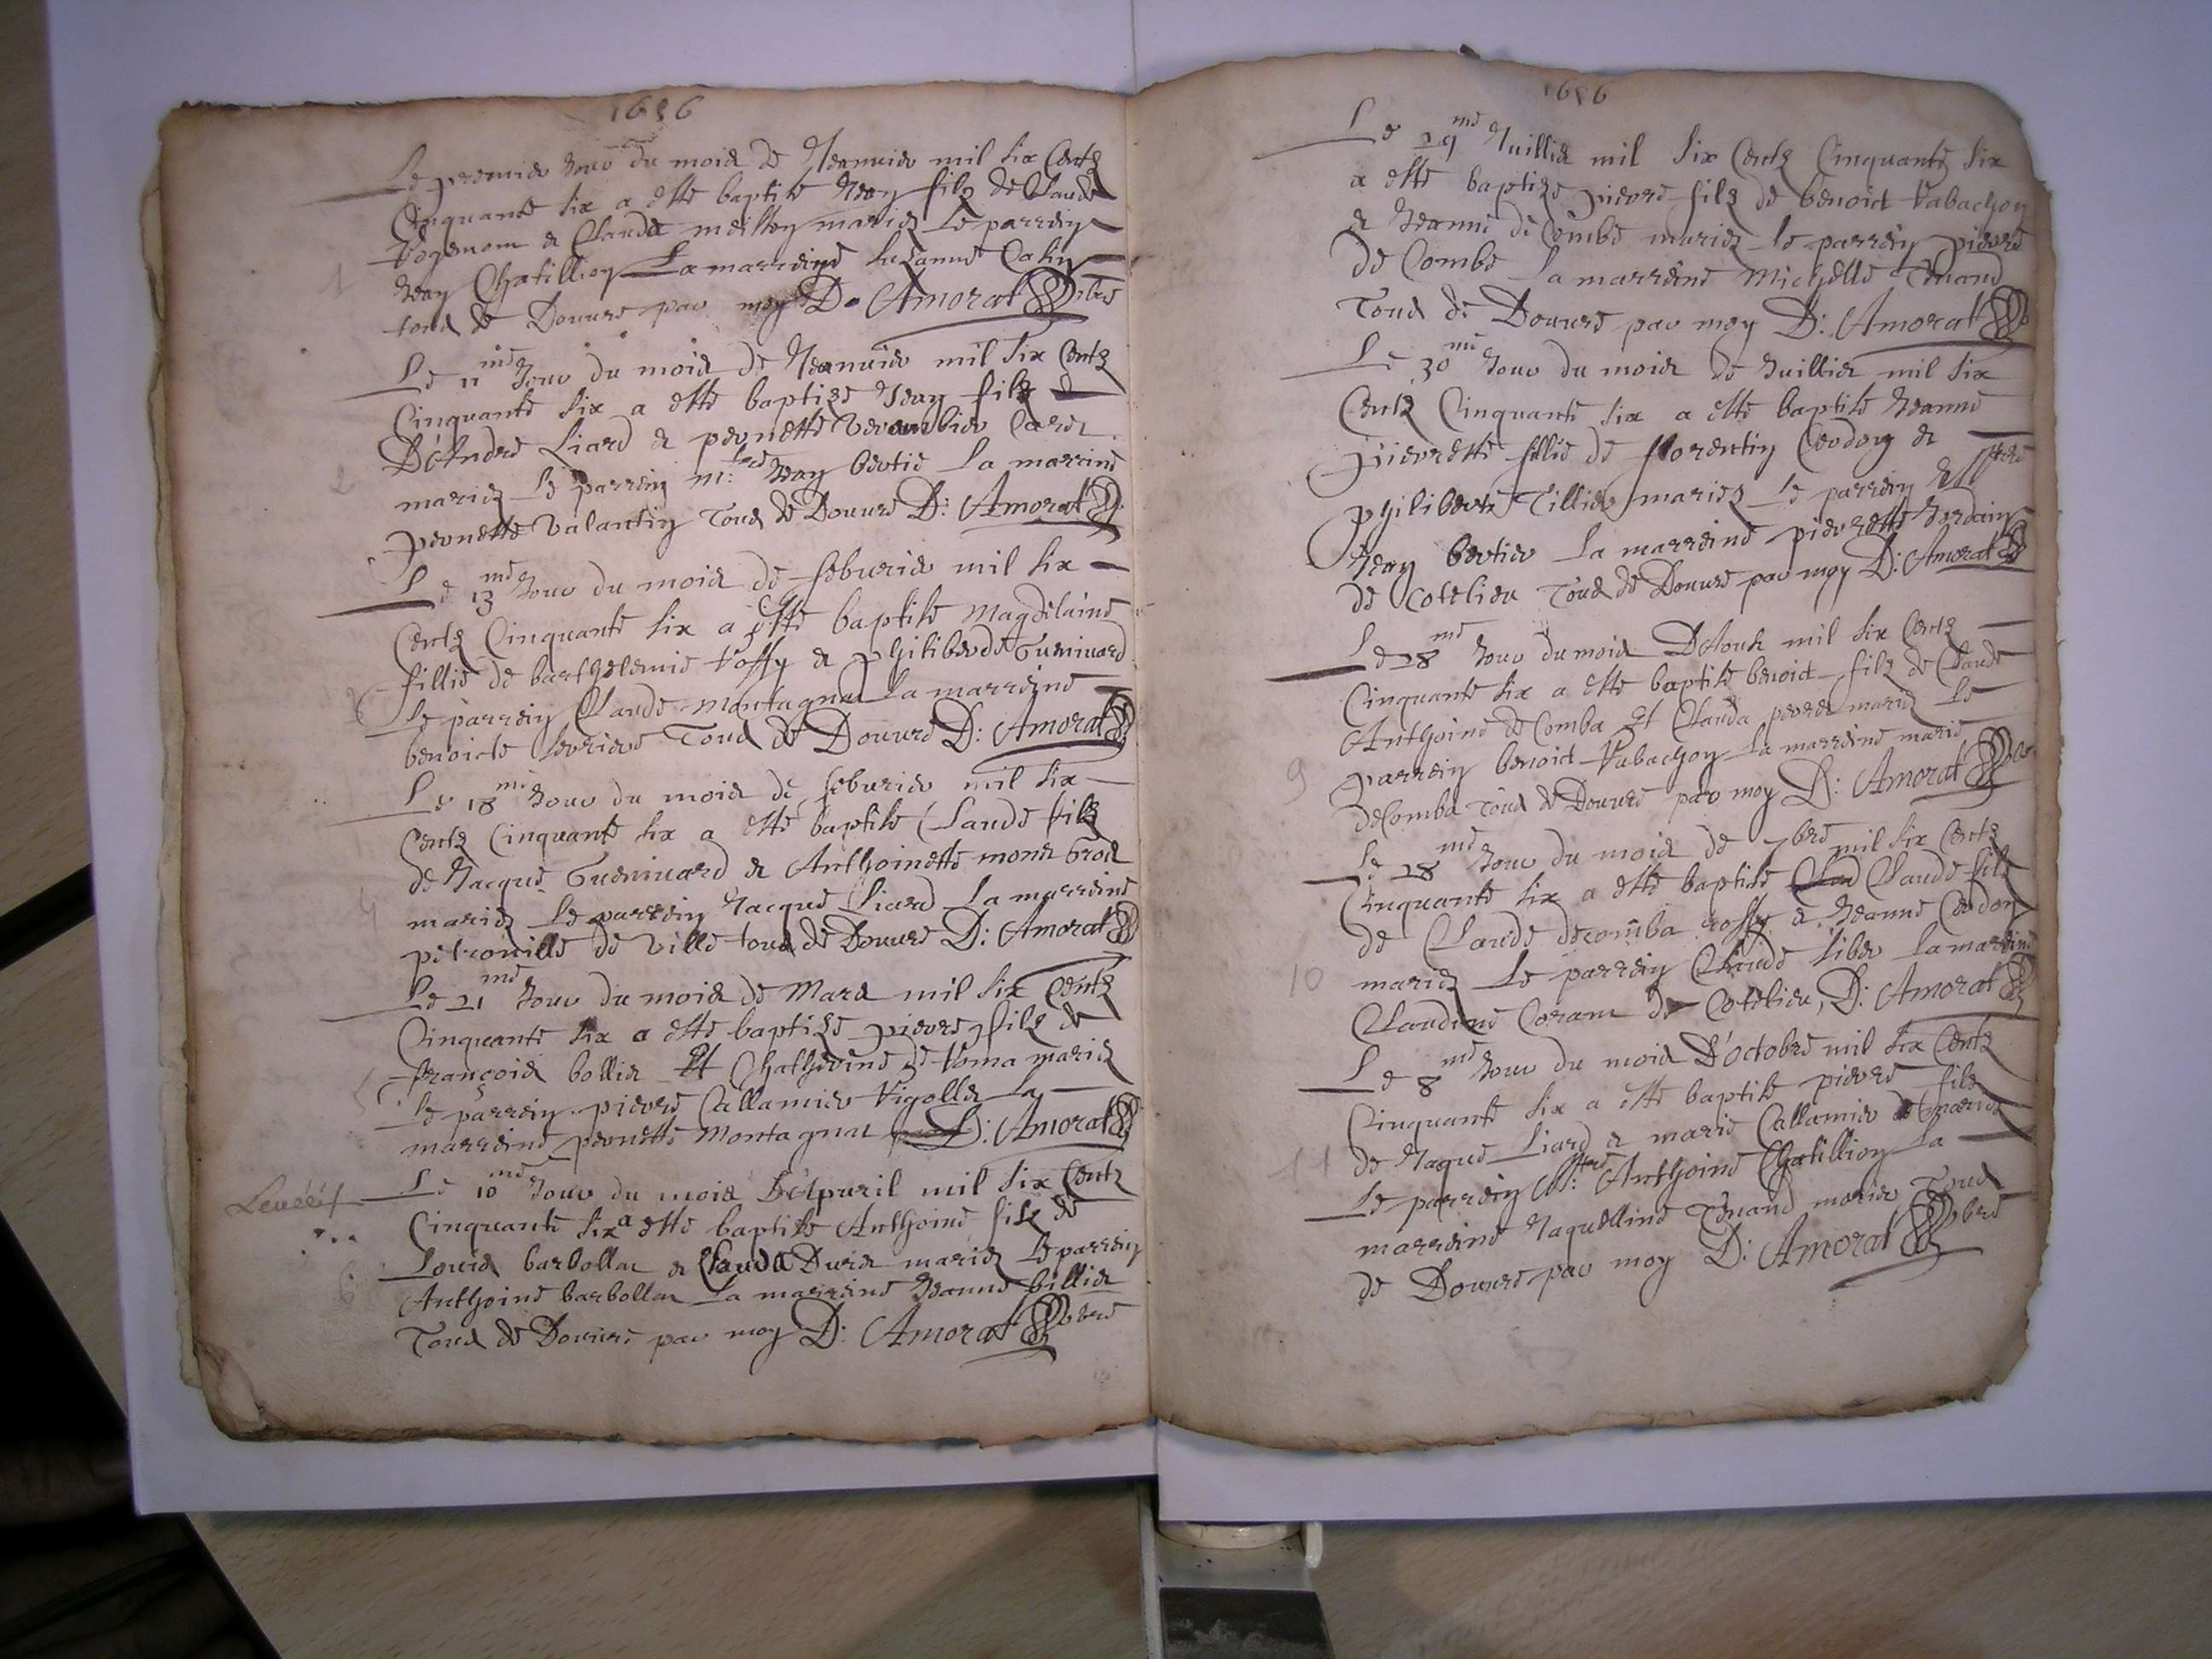 1656
Le premier Jour du mois de Jeanvier mil six Centz
Cinquante six a esté baptisé Jean filz de Claude
Claude mariez Le parrein
Jean Chatillion La marreine Susanne
tous de Douvre par moy D. Amorat pbre
Le 11 me Jour du mois de Jeanvier mil six Centz
Cinquante six a esté baptizé Jean filz
D'Andre Liard et pernette
mariez Le parrein m:tre Jean bertie La marrine
pernette Valantin Tous de Douvre D: Amorat
Le 13 me Jour du mois de feburier mil six
Centz Cinquante six a esté baptisé Magdelaine
fillie de barthelemie et philiberde Guenivard
Le parrein Claude Montagnat La marreine
benoicte Tous de Douvre D: Amorat
Le 18 me Jour du mois de feburier mil six
Centz Cinquante six a esté baptisé Claude filz
de Jacque Guenivard et Anthoinette
mariez Le parrein Jacque Liard La marreine
petronille de Ville tous de Douvre D: Amorat
Le 21 me Jour du mois de Mars mil six Centz
Cinquante six a esté baptizé pierre filz de
françois bollie Et Chatherine de mariez
Le parrein pierre Callamier La
marreine pernette Montagnat D: Amorat
Le 10 me Jour du mois D'Apvril mil six Centz
Cinquante six a esté baptisé Anthoine filz de
Louis barbollat et Clauda Duret mariez Le parrein
Anthoine barbollat La marreine Jeanne billiet
Tous de Douvre par moy D: Amorat pbre
1
2
3
4
5
6
1656
Le 29 me Juillie mil six Centz Cinquante six
a esté baptizé pierre filz de benoict Rabachon
et Jeanne de Combe mariez le parrein pierre
de Combe La marreine Michelle Tenand
Tous de Douvre par moy D: Amorat
Le 30 me Jour du mois de Juillie mil six
Centz Cinquante six a esté baptisé Jeanne
pierrette fillie de florentin Cerdon et
philiberte Tillier mariez Le parrein
Jean bertier La marreine pierrette Jordain
de Cotelieu Tous de Douvre par moy D: Amorat
Le 28 me Jour du mois D'Aoust mil six Centz
Cinquante six a esté baptisé benoict filz de Claude
Anthoine de Comba Et Clauda mariez Le
parrein benoict Rabachon La marreine marie
deComba Tous de Douvre par moy D: Amorat pbr
Le 28 me Jour du mois de 7bre mil six Centz
Cinquante six a esté baptisé Claude filz
de Claude decomba et Jeanne Cerdon
mariez Le parrein Claude La marreine
Claudine de Cotelieu, D: Amorat
Le 8 me Jour du mois D'octobre mil six Centz
Cinquante six a esté baptisé pierre filz
de Jaque Liard et marie Callamier mariez
Le parrein M:tre Anthoine Chatillion La
marreine Jaquelline Tenand mariez Tous
de Douvre par moy D: Amorat pbre
9
10
11